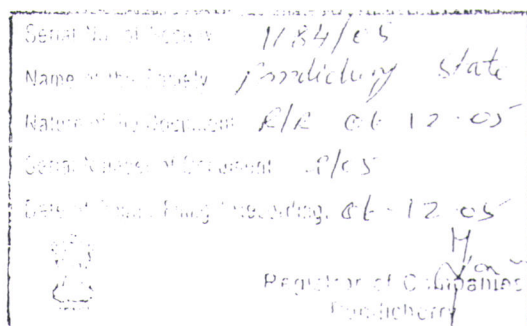 Serial No. of Society 1184/05
Name of the Society Pondicherry State
Nature of the Document R/R 06 12.05
Serial Number of Document /05
Date of Filing / Recording. 06-12 05
Registrar of Companies
Pondicherry